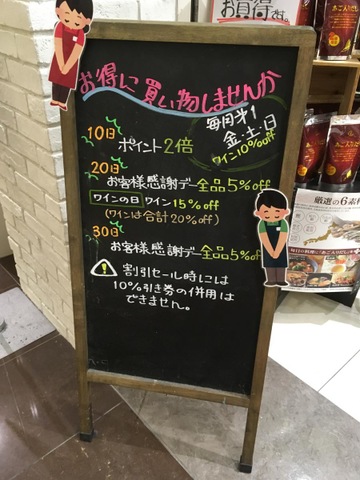 お買得です。
お得に買い物しませんか
毎月第1
金・土・日
ワイン10%off
10日
ポイント2倍
20日
お客様感謝デー全品5%off
ワインの日 ワイン15%off
(ワインは合計20%off)
30日
お客様感謝デー全品5%off
割引セール時には
10%引き券の併用は
できません。
厳選の6素材